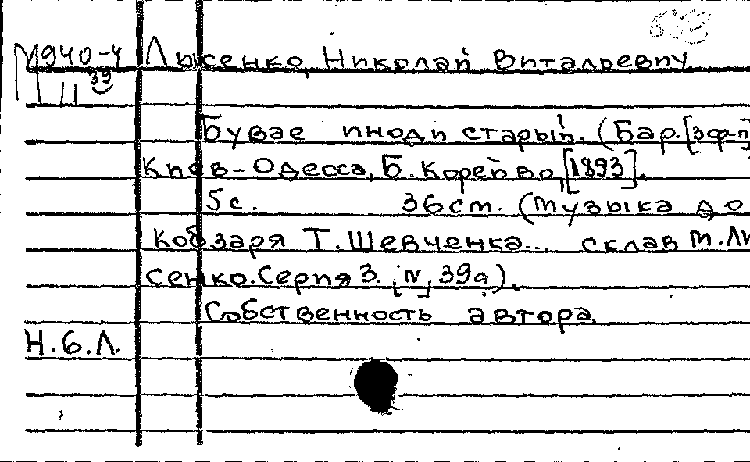 М940-4 Лысенко, Николай Витальевич
39
III
Бувае иноди старый. (Бар. [зф-п]
Киев-Одесса, Б. Корейво, [1893].
5с. 36см. (Музыка до
Кобзаря Т. Шевченка... склав М. Ли
сенко. Серия 3. [N, 39а).
Собственность автора.
Н.Б.Л.